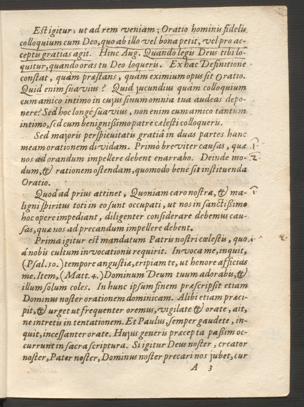 Est igitur, ut ad rem veniam; Oratio hominis fidelis
colloquium cum Deo, quo ab illo vel bona petit, vel pro ac-
ceptis gratias agit. Hinc Aug. Quando legis Deus tibi lo-
quitur, quando oras tu Deo loqueris. Ex hac Definitione
constat, quam præstans, quam eximium opus sit Oratio.
Quid enim suavius? Quid jucundius quam colloquium
cum amico intimo in cujus sinum omnia tua audeas depo-
nere? Sed hoc longè suavius, non enim cum amico tantum
intimo, sed cum benignissimo patre cælesti colloqueris.
Sed majoris perspicuitatis gratiâ in duas partes hanc
meam orationem dividam. Primò breviter causas, quæ
nos ad orandum impellere debent enarrabo. Deinde mo-
dum, & rationem ostendam, quomodo benè sit instituenda
Oratio.
Quod ad prius attinet, Quoniam caro nostra, & ma-
ligni spiritus toti in eo sunt occupati, ut nos in sanctissimo
hoc opere impediant, diligenter considerare debemus cau-
sas, quæ nos ad precandum impellere debent.
Prima igitur est mandatum Patris nostri cœlestis, quo
â nobis cultum invocationis requirit. Invoca me, inquit,
(Psal. 50.) tempore angustiæ, eripiam te, ut honore afficias
me. Item, (Matt. 4.) Dominum Deum tuum adorabis, &
illum solum coles. In hunc ipsum finem præscripsit etiam
Dominus noster orationem dominicam. Alibi etiam præci-
pit, & urget ut frequenter oremus, vigilate & orate, ait,
ne intretis in tentationem. Et Paulus, semper gaudete, in-
quit, incessanter orate. Hujus generis præcepta passim oc-
currunt in sacra scriptura. Si igitur Deus noster, creator
noster, Pater noster, Dominus noster precari nos jubet, cur
A 3